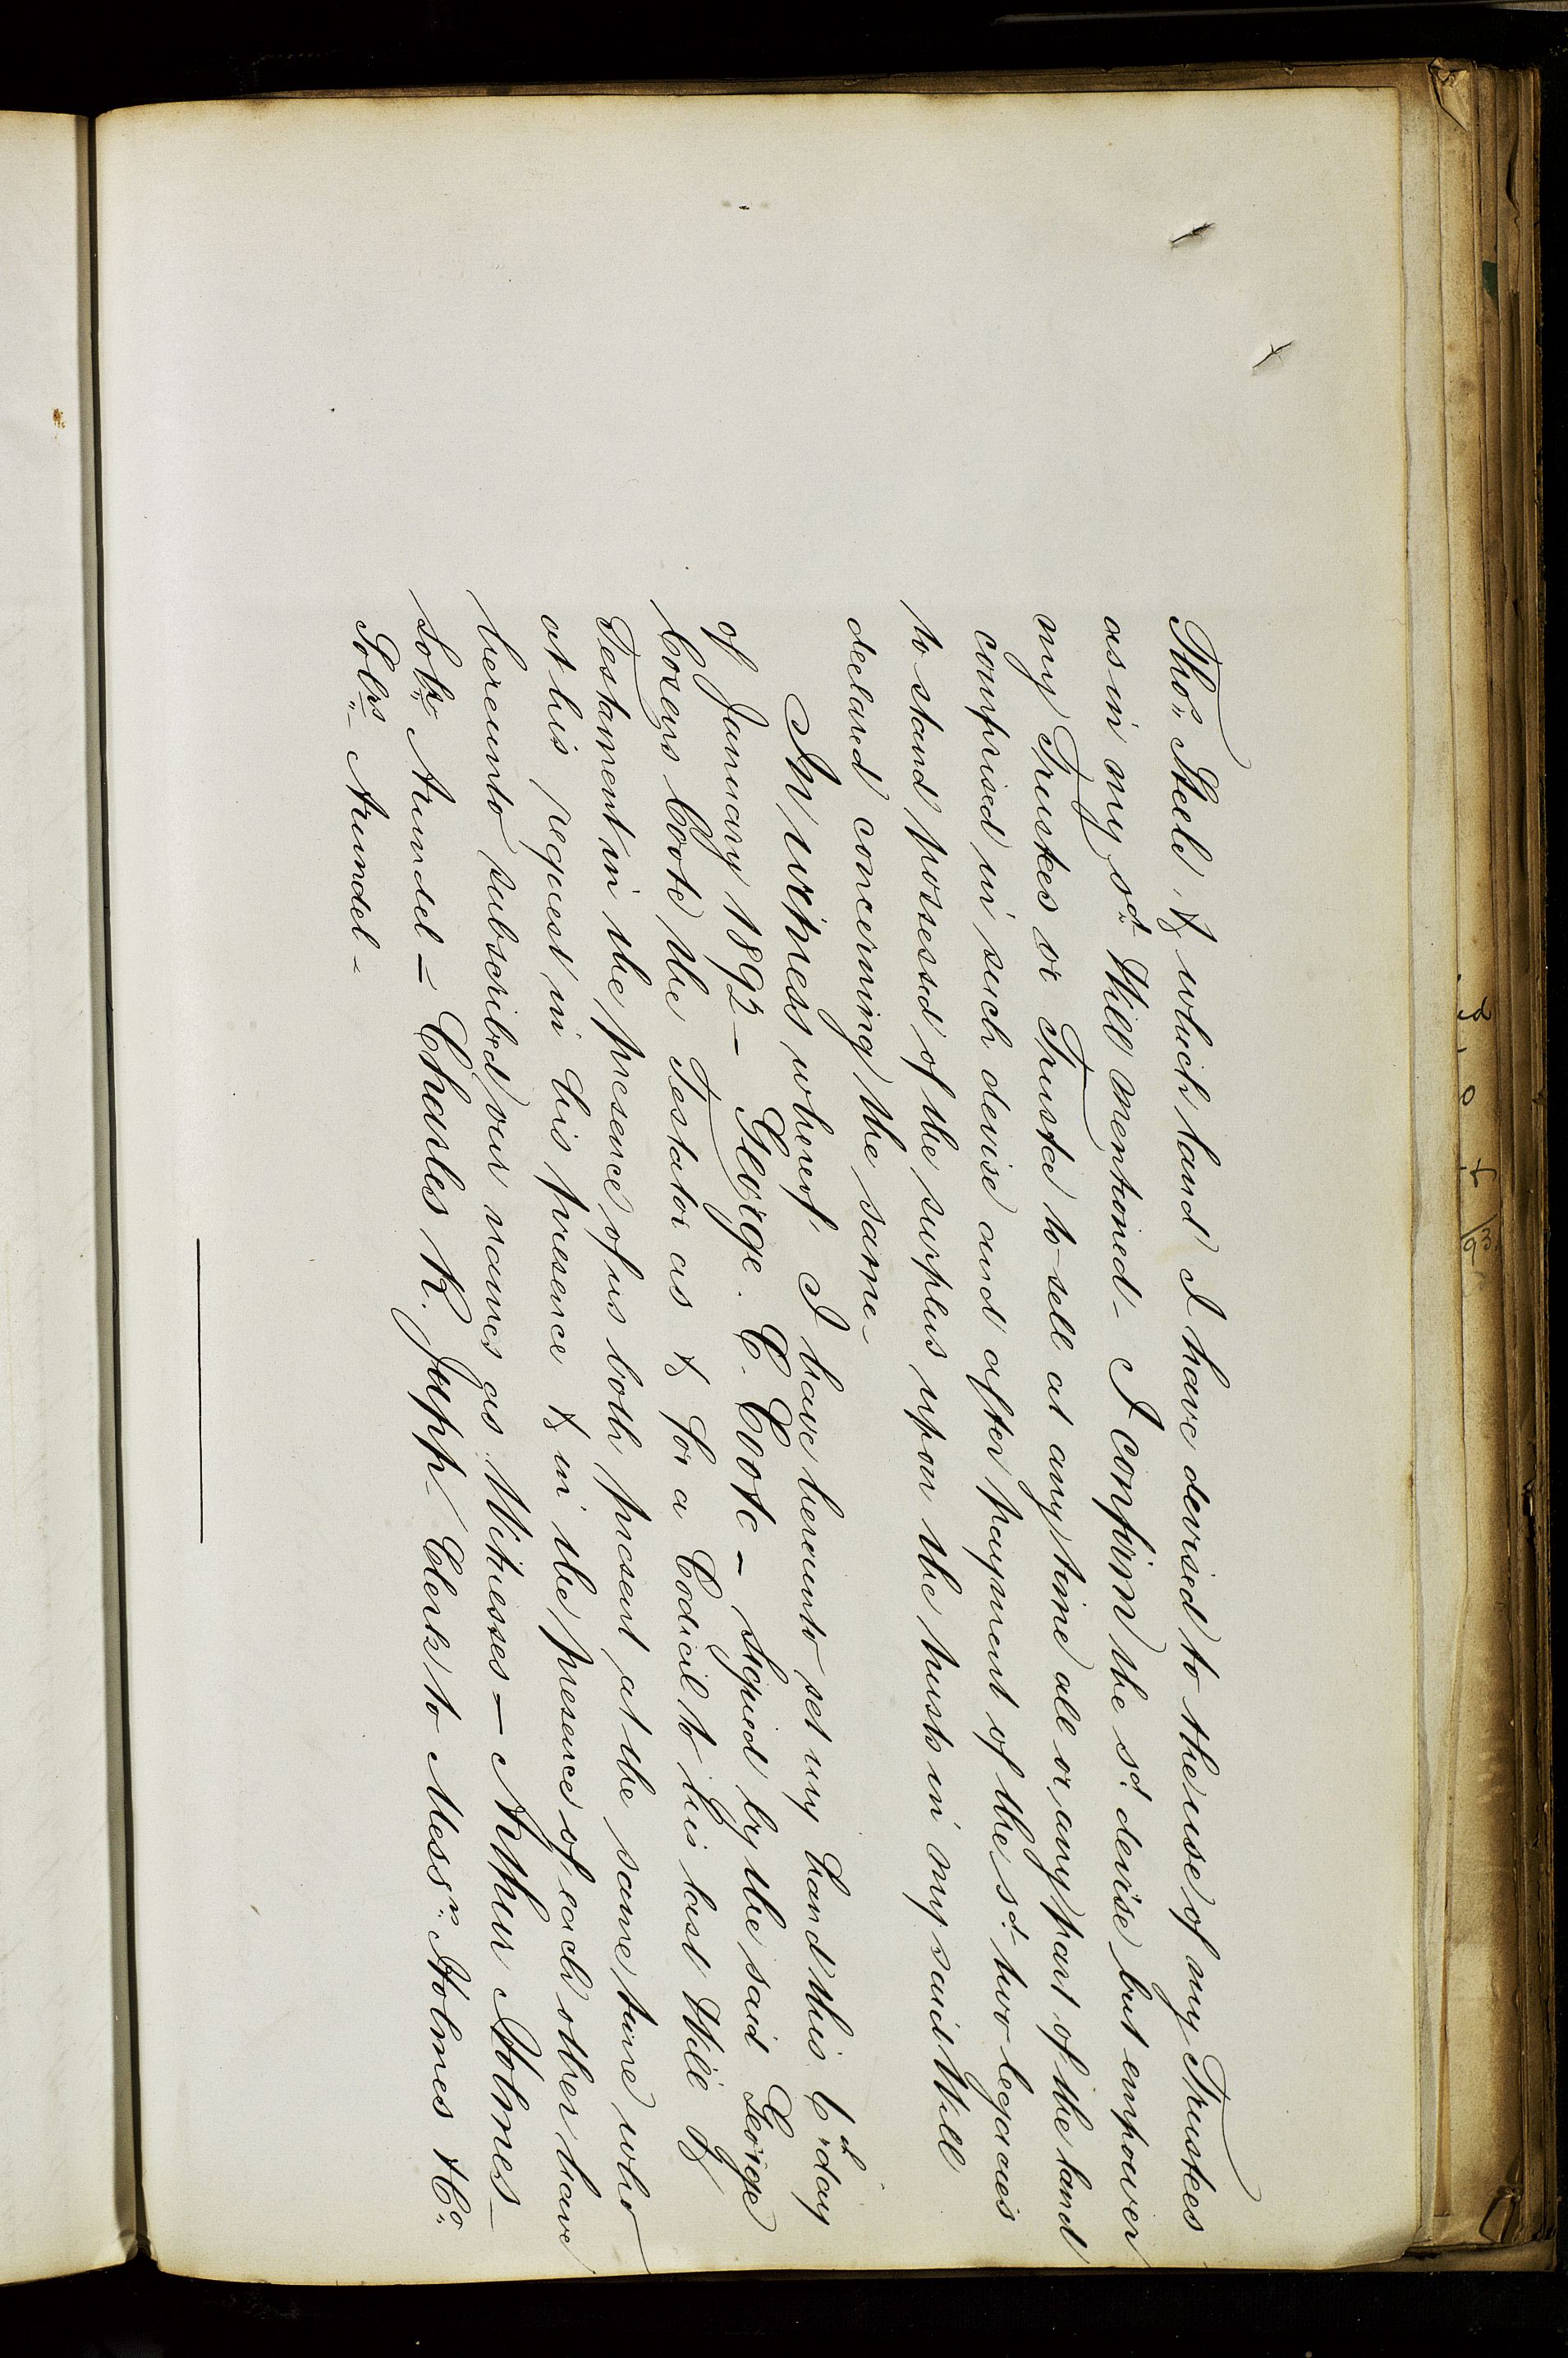 Tho.s Steele & which land I have devised to the use of my Trustees
as in my sd. Will mentioned - I confirm the sd. devise but empower
my Trustees or Trustee to sell at any time all or any part of the land
comprised in such devise and after payment of the sd. two legacies
to stand possessed of the surplus upon the trusts in my said Will
declared concerning the same -
In witness whereof I have hereunto set my hand this 6th day
of January 1892 - George. C. Coote - Signed by the said George
Cozens Coote the Testator as & for a Codicil to his last Will &
Testament in the presence of us both present at the same time who
at his request in his presence & in the presence of each other have
hereunto subscribed our names as Witnesses - Arthur Holmes -
Solr. Arundel - Charles R. Jupp - Clerk to Messrs. Holmes & Co.
Solrs. Arundel -
ed
93